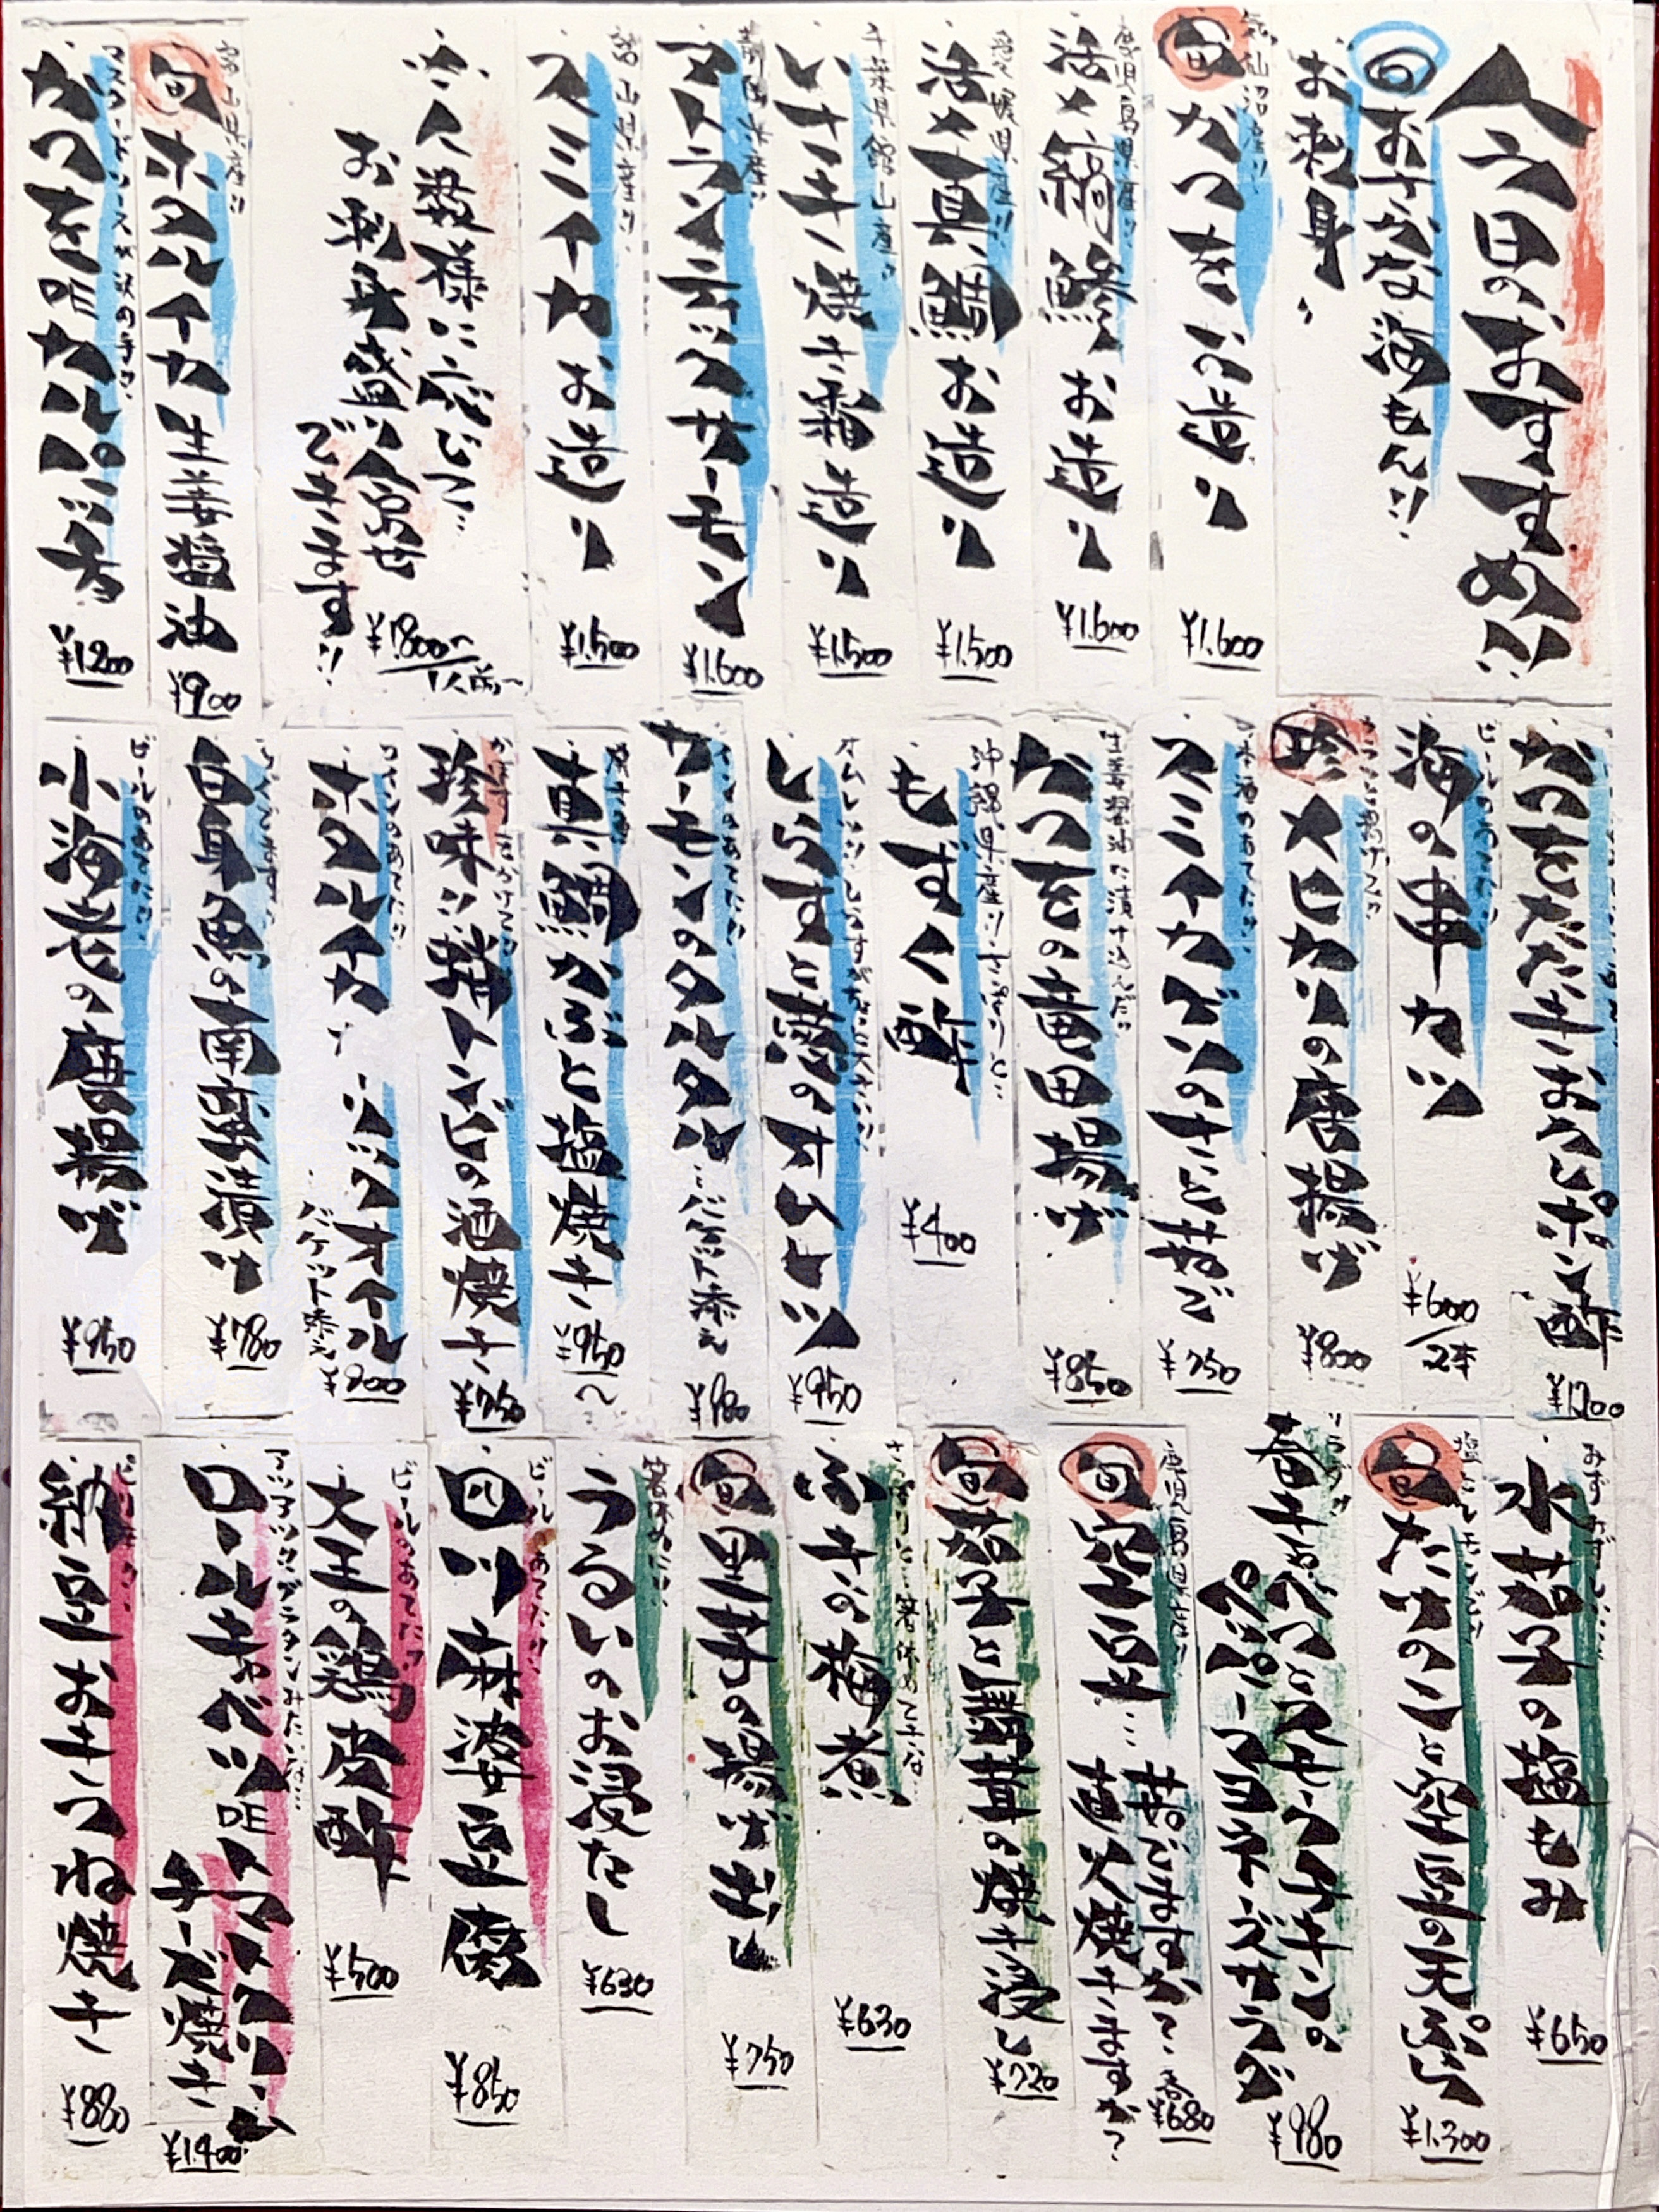 今日のおすすめ!!
旬 おすすめな海もん!!
お刺身
気仙沼産!!
旬 かつをお造り
¥1.600
鹿児島県産!!
活〆縞鯵お造り
¥1.600
愛媛県産!!
活〆真鯛お造り
¥1.500
千葉県館山産!!
いサキ焼き霜造り
¥1.500
青森県産!!
アトランティックサーモン
¥1.600
富山県産!!
スミイカお造り
¥1.500
人数様に応じて…
お刺身盛り合せ
できます!!
¥1.800〜
1人前〜
富山県産!!
旬 ホタルイカ生姜醤油
¥900
マスタードソースが決め手!!
かつをdeカルパッチョ
¥1.200
かつをたたきおろしポン酢
¥1.200
ビールのあてに!!
海の串カツ
¥600/2本
カラッと揚げて!!
珍 メヒカリの唐揚げ
¥800
日本酒のあてに!!
スミイカゲソのさっと茹で
¥750
生姜醤油に漬け込んだ!!
かつをの竜田揚げ
¥850
沖縄県産!!さっぱりと…
もずく酢
¥400
しらすと葱のオムレツ
¥950
ワインのあてに!!
サーモンのタルタル…バケット添え
¥980
真鯛かぶと塩焼き
¥950〜
珍味!!鮪トンビの酒焼き
¥750
ワインのあてに!!
ホタルイカ
ガーリックオイル
バケット添え
¥900
白身魚の南蛮漬け
¥780
ビールのあてに!!
小海老の唐揚げ
¥950
水茄子の塩もみ
¥650
旬 たけのこと空豆の天ぷら
¥1.300
春キャベツとスモークチキンの
ペッパーマヨネーズサラダ
¥980
鹿児島県産!!
旬 空豆…
茹でますか?
直火焼きますか?
各¥680
旬 茄子と椎茸の焼き浸し
¥720
さっぱりと…箸休めに
ふきの梅煮
¥630
旬 里芋の揚げ出し
¥750
箸休めに!!
うるいのお浸たし
¥630
ビールのあてに!!
四川麻婆豆腐
¥850
ビールのあてに!!
大王の鶏皮酢
¥500
アツアツ!!グラタンみたいな…
ロールキャベツdeトマトクリーム
チーズ焼き
¥1.400
納豆おきつね焼き
¥880